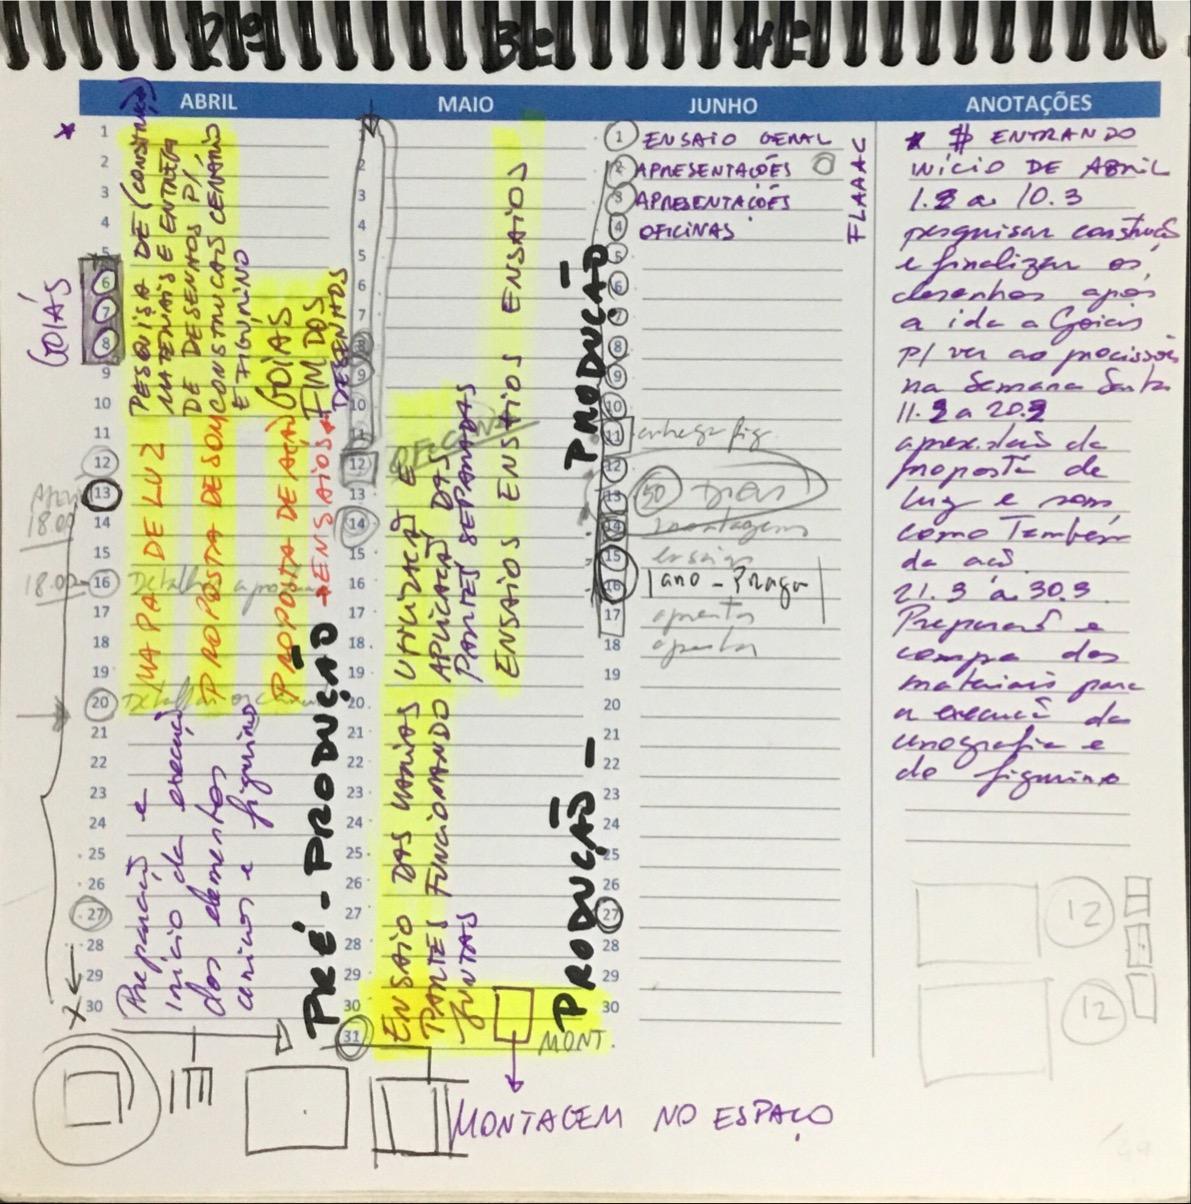 2º 3º 4º
ABRIL
MAIO
JUNHO
ANOTAÇÕES
1
2
3
4
5
6
7
8
9
10
11
12
13
14
15
16
17
18
19
20
21
22
23
24
25
26
27
28
29
30
GOIÁS
18.00
18.00
PESQUISA DE
MATERIAIS E ENTREGA
DE DESENHOS P/
CONSTRUÇÃO CENÁRIO
E FIGURINO
GOIÁS
FIM DOS
DESENHOS
MAPA DE LUZ
PROPOSTA DE SOM
PROPOSTA DE AÇÃO
+ENSAIOS
Preparação e
início da execução
dos elementos
cênicos e figurino
PRÉ-PRODUÇÃO
1
2
3
4
5
6
7
8
9
10
11
12
13
14
15
16
17
18
19
20
21
22
23
24
25
26
27
28
29
30
31
OFICINA
UTILIZAÇÃO E
APLICAÇÃO DAS
PARTES SEPARADAS
ENSAIOS ENSAIOS ENSAIOS ENSAIOS
ENSAIO DAS VÁRIAS
PARTES FUNCIONANDO
JUNTAS
PRODUÇÃO - PRODUÇÃO
MONT.
MONTAGEM NO ESPAÇO
1 ENSAIO GERAL
2 APRESENTAÇÕES
3 APRESENTAÇÕES
4 OFICINAS
FLAAC
5
6
7
8
9
10
11 entrega fig.
12
13 50
14 montagem
15 ensaio
16 1 ano - Praga
17
18
19
20
21
22
23
24
25
26
27
28
29
30
* $ ENTRANDO
INÍCIO DE ABRIL
1.3 a 10.3
pesquisar construção
e finalizar os
desenhos após
a ida a Goiás
p/ ver as procissões
na Semana Santa
11.3 a 20.3
apresentação da
proposta de
luz e som
como também
da ação.
21.3 à 30.3
Preparação e
compra dos
materiais para
a execução da
cenografia e
do figurino
12
12